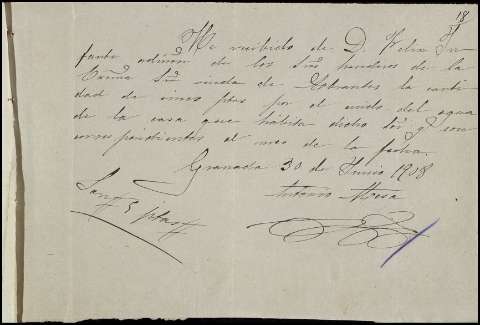 18
He recibido de D. Felix In-
fante admon de los Sres herederos de la
Exma Sra viuda de Sobrantes la canti-
dad de cinco ptas por el cuido del agua
de la casa que habita dicho Sor y son
correspondientes al mes de la fecha.
Granada 30 de Junio 1908
Antonio Mesa
Son 5 ptas